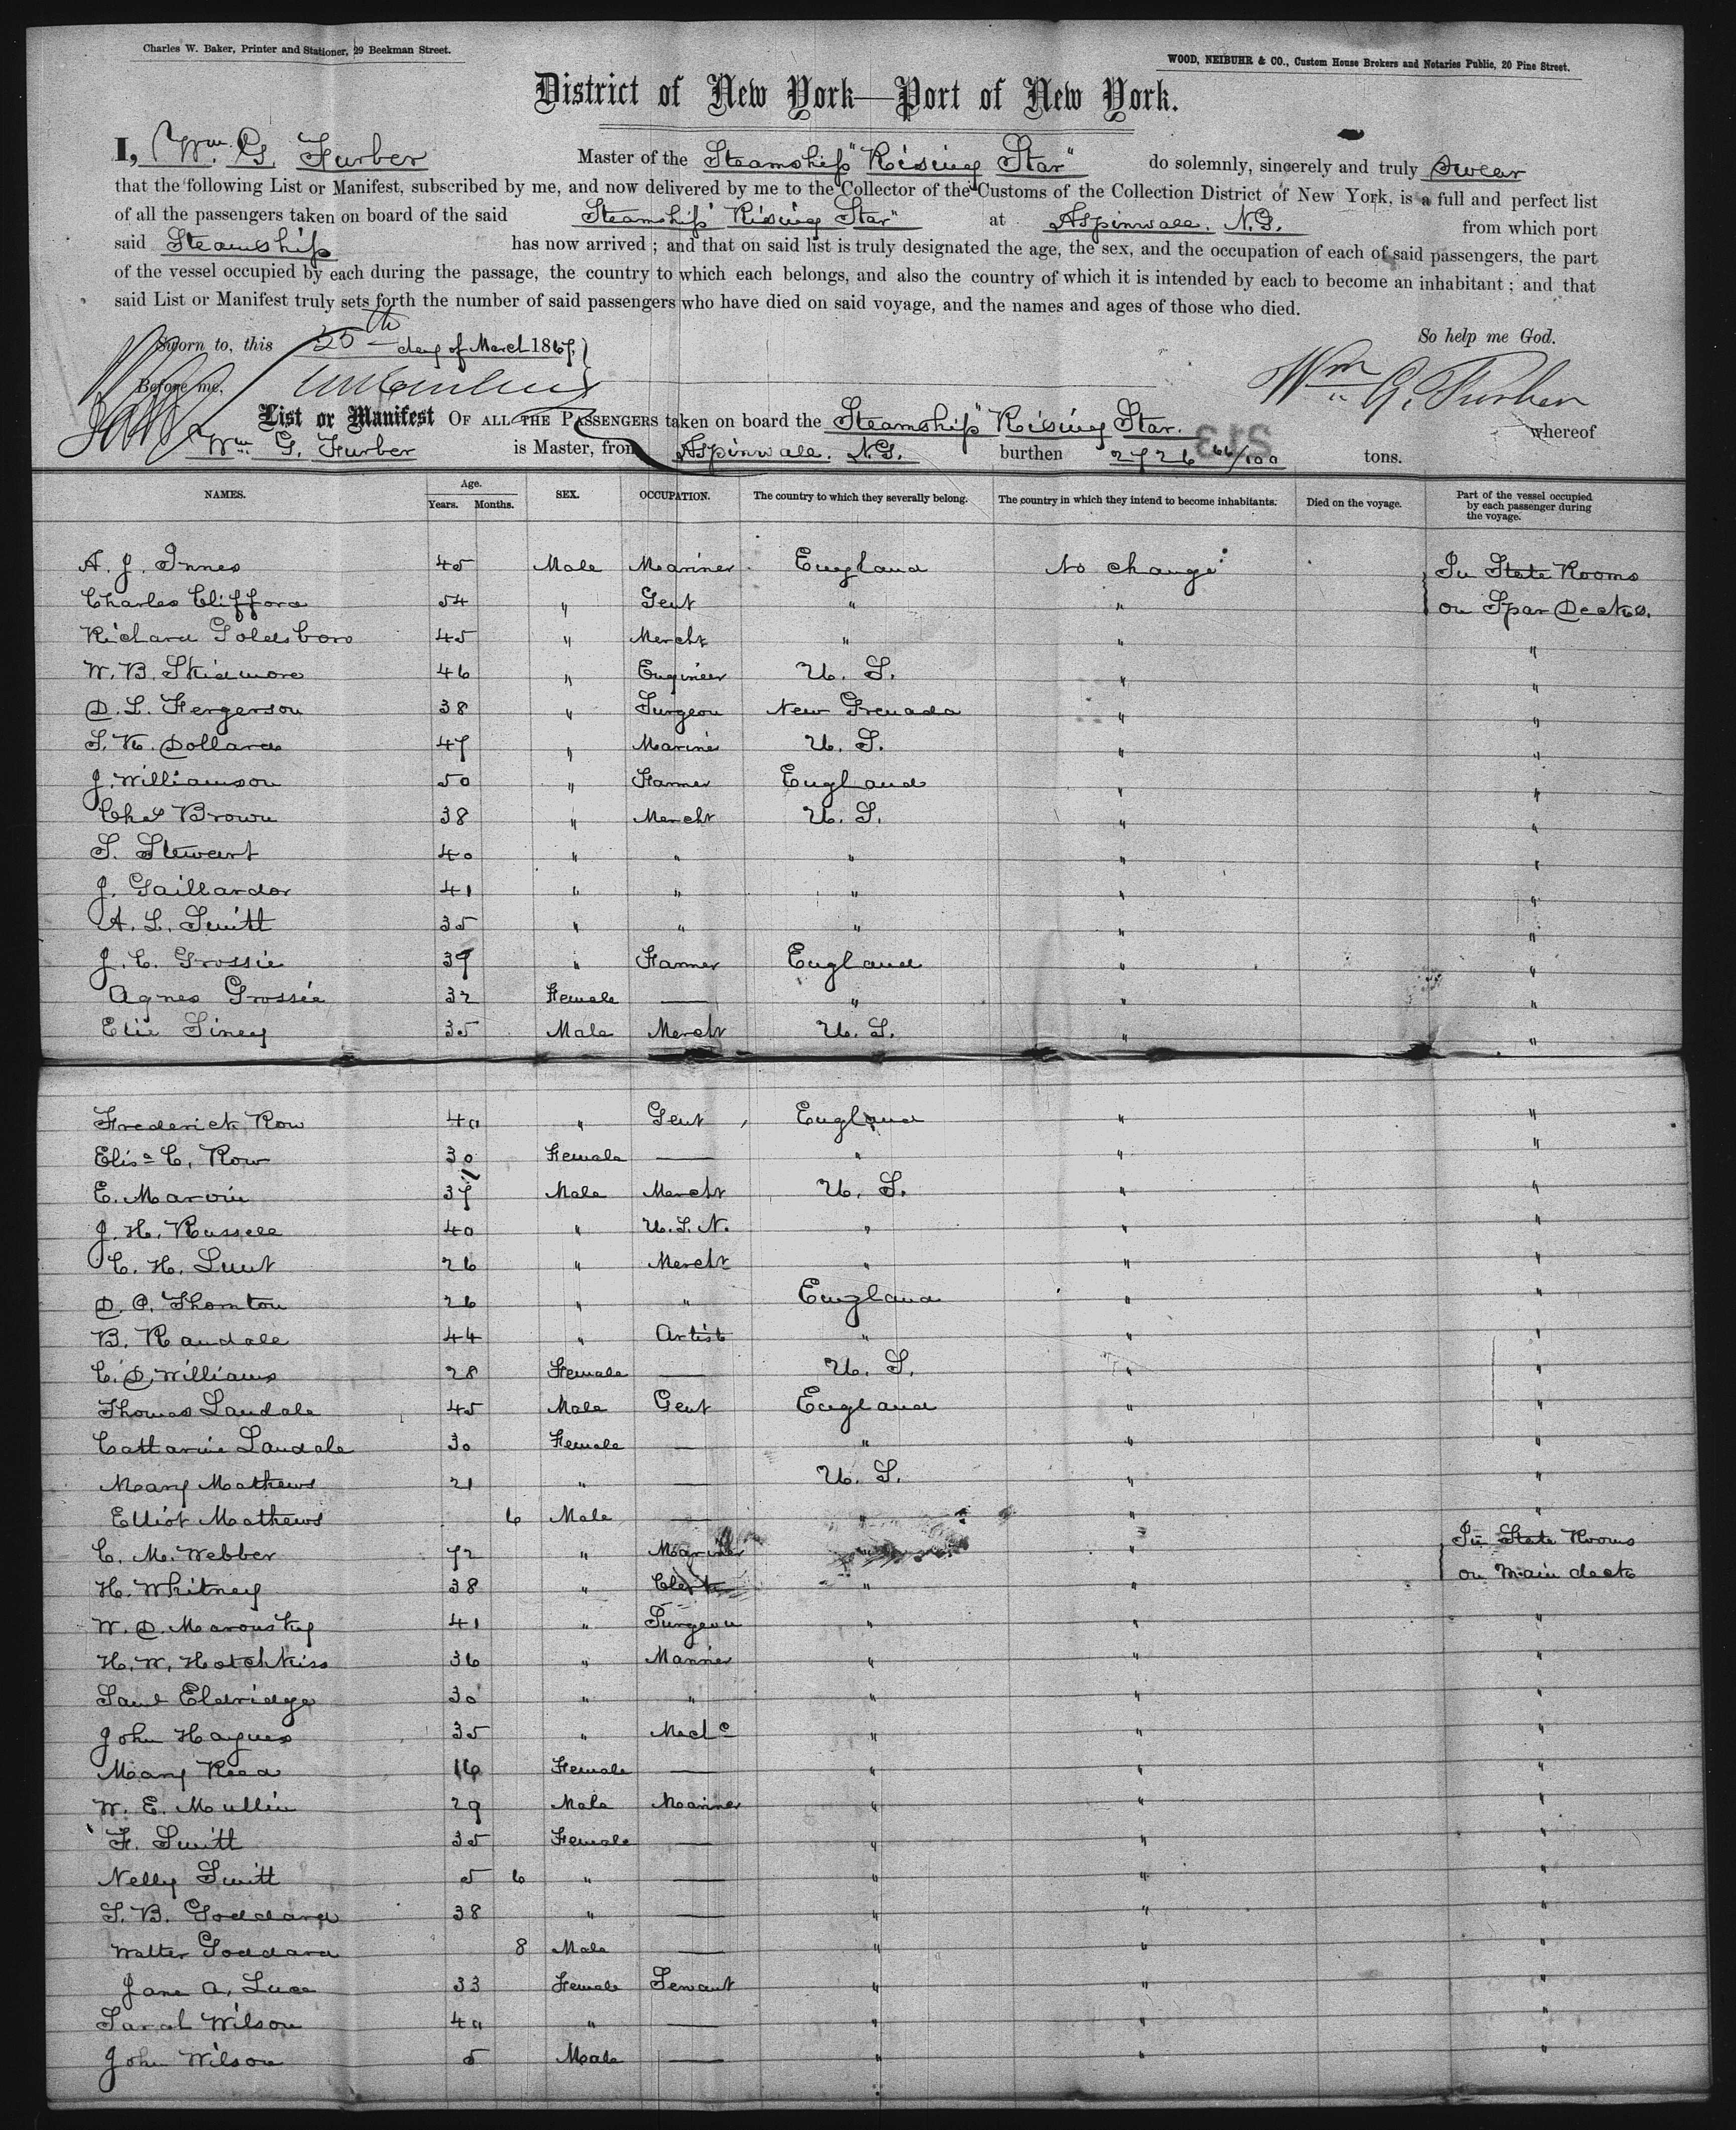 Charles W. Baker, Printer and Stationer, 29 Beekman Street.
WOOD, NEIBUHR & CO., Custom House Brokers and Notaries Public, 20 Pine Street.
District of New York—Port of New York.
I, Wm. G. Furber Master of the Steamship "Rising Star" do solemnly, sincerely and truly swear
that the following List or Manifest, subscribed by me, and now delivered by me to the Collector of the Customs of the Collection District of New York, is a full and perfect list
of all the passengers taken on board of the said Steamship "Rising Star" at Aspinwall. N.G. from which port
said Steamship has now arrived; and that on said list is truly designated the age, the sex, and the occupation of each of said passengers, the part
of the vessel occupied by each during the passage, the country to which each belongs, and also the country of which it is intended by each to become an inhabitant; and that
said List or Manifest truly sets forth the number of said passengers who have died on said voyage, and the names and ages of those who died.
So help me God.
Sworn to, this 25th day of March 1867.
Before me,
Wm G. Furber
List or Manifest OF ALL THE PASSENGERS taken on board the Steamship "Rising Star. whereof
Wm. G. Furber is Master, from Aspinwall. N.G. burthen 2726 66/100 tons.
NAMES. Age. Years. Months. SEX. OCCUPATION. The country to which they severally belong. The country in which they intend to become inhabitants. Died on the voyage. Part of the vessel occupied by each passenger during the voyage.
A. J. Innes 45 Male Mariner England No change In State Rooms
Charles Clifford 54 " Gent " " on Spar Decks.
Richard Goldsboro 45 " Mercht " " "
W. B. Skidmore 46 " Engineer U. S. " "
D. L. Fergerson 38 " Surgeon New Grenada " "
S. K. Dollard 47 " Marine U. S. " "
J. Williamson 50 " Farmer England " "
Chas Brown 38 " Mercht U. S. " "
S. Stewart 40 " " " " "
J. Gaillardor 41 " " " " "
A. L. Switt 35 " " " " "
J. C. Grossie 39 " Farmer England " "
Agnes Grossie 32 Female — " " "
Elie Siney 35 Male Mercht U. S. " "
Frederick Row 40 " Gent England " "
Elisa C. Row 30 Female — " " "
E. Marvin 37 Male Mercht U. S. " "
J. H. Russell 40 " U.S.N. " " "
C. H. Lunt 26 " Mercht " " "
D. P. Thornton 26 " " England " "
B. Randall 44 " Artist " " "
C. D. Williams 28 Female — U. S. " "
Thomas Landale 45 Male Gent England " "
Catharine Landale 30 Female — " " "
Mary Mathews 21 " — U. S. " "
Elliot Mathews 6 Male — " " "
C. M. Webber 72 " Mariner " " In State Rooms
H. Whitney 38 " Clerk " " on Main deck
W. D. Marousky 41 " Surgeon " " "
H. W. Hotchkiss 36 " Mariner " " "
Saml Eldridge 30 " " " " "
John Haynes 35 " Mech " " "
Mary Reed 16 Female — " " "
W. E. Mullin 29 Male Mariner " " "
F. Switt 35 Female — " " "
Nelly Switt 5 6 " — " " "
S. B. Goddard 38 " — " " "
Walter Goddard 8 Male — " " "
Jane A. Luce 33 Female Servant " " "
Sarah Wilson 40 " — " " "
John Wilson 5 Male — " " "